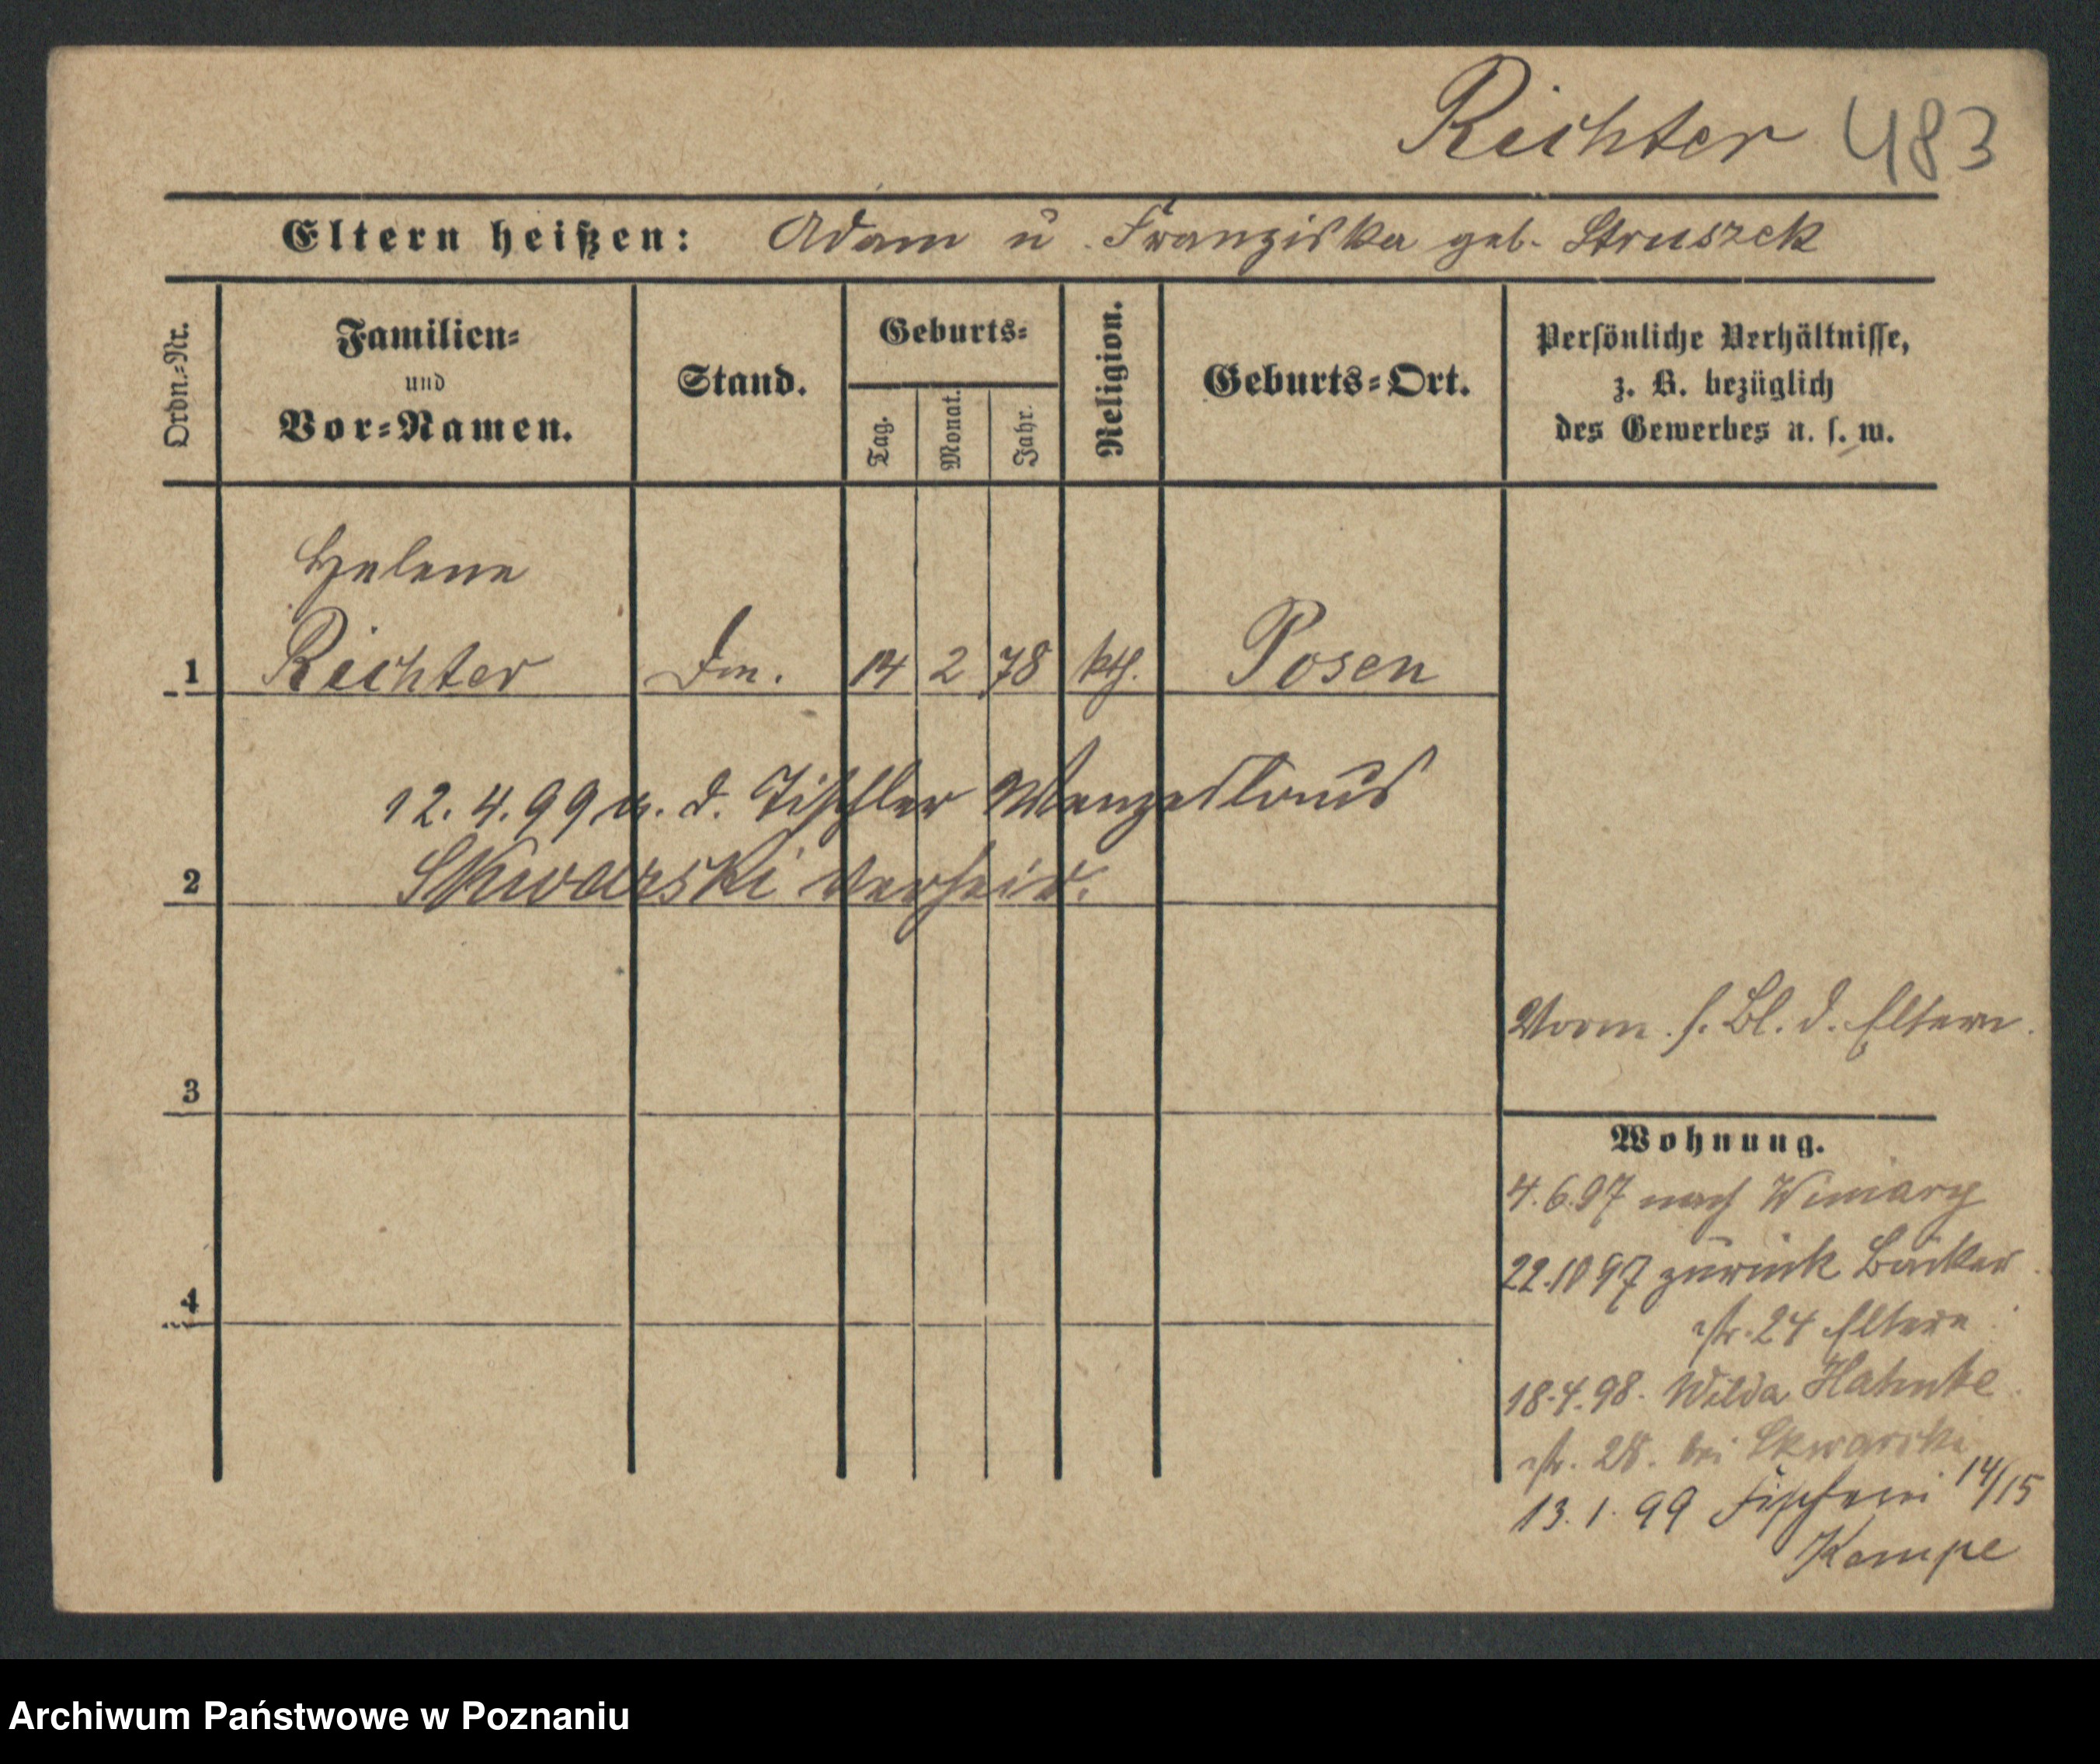 Richter 483
Eltern heißen: Adam u. Franziska geb. Struszek
Ordn.-Nr.
Familien-
und
Vor-Namen.
Stand.
Geburts-
Tag.
Monat.
Jahr.
Religion.
Geburts-Ort.
Persönliche Verhältnisse,
z. B. bezüglich
des Gewerbes u. s. w.
Helene
1 Richter 14 2 78 kth. Posen
12.4.99 m. d. Tischler Wenzeslaus
2 Skwarski verheir.
3
Vorm. s. Bl. d. Eltern.
4
Wohnung.
4.6.97 nach Winiary
22.10 97 zurück Bäcker
str. 24 Eltern
18.4.98. Wilda Hahnke
str. 28. bei Skwarski
13. 1. 99 Fischerei 14/15
Kempe
Archiwum Państwowe w Poznaniu